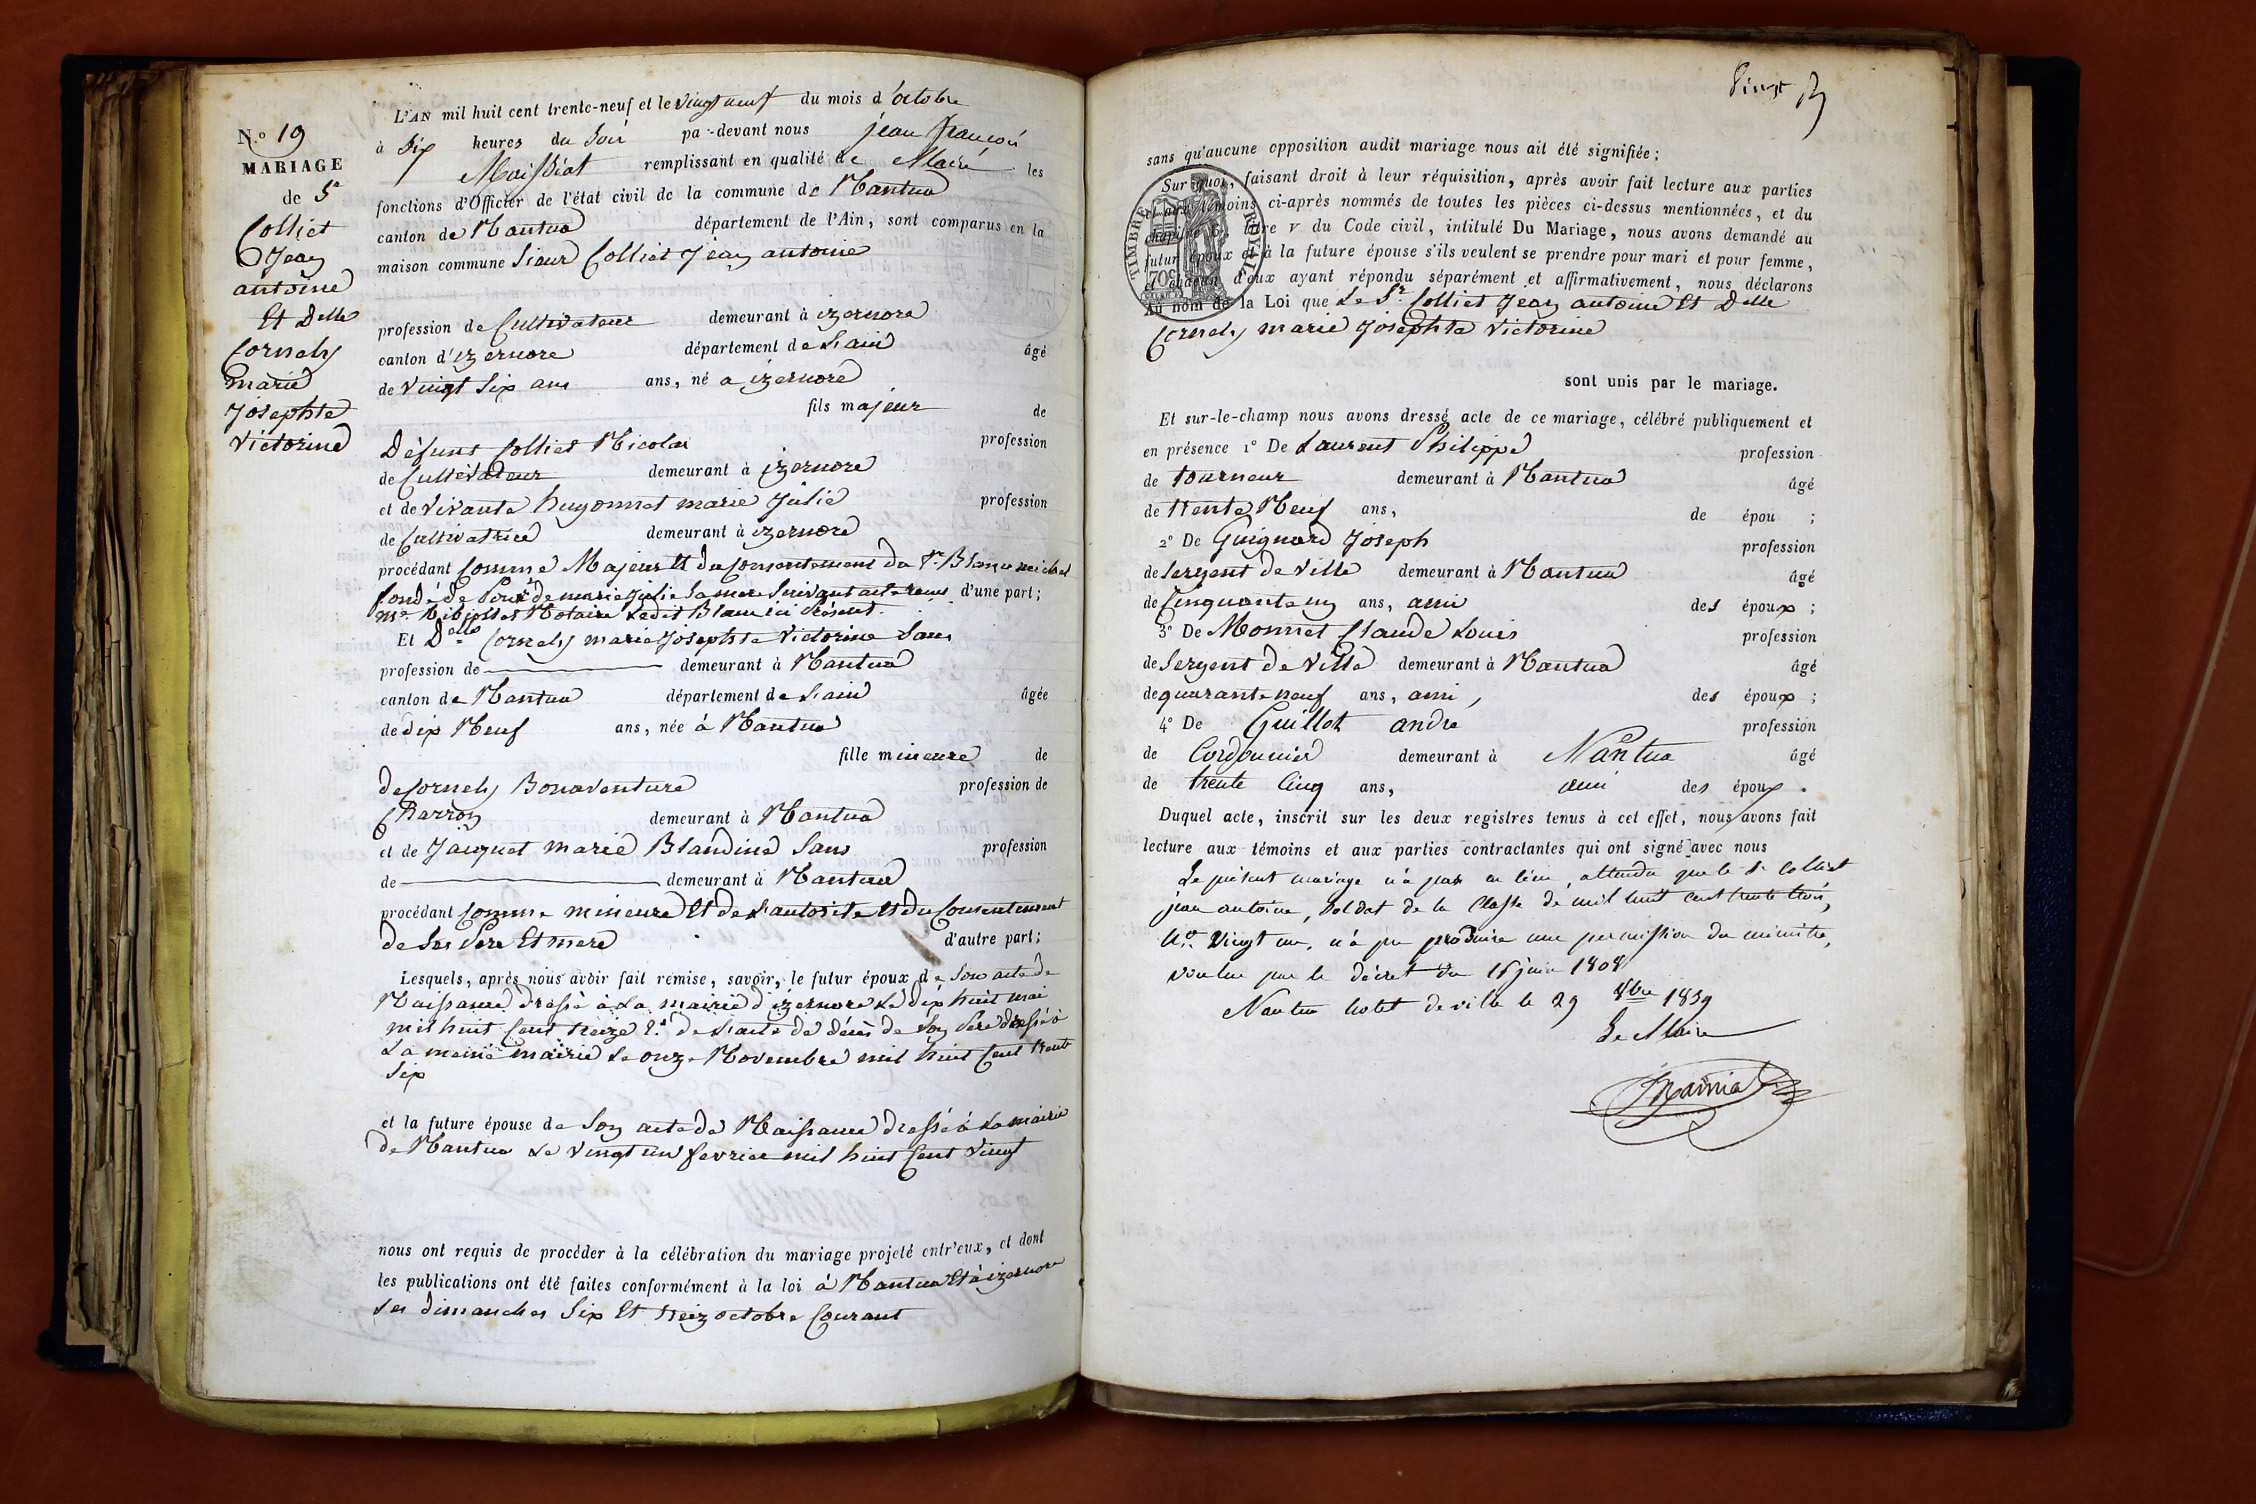 N.º 19
MARIAGE
de Sr
Colliet
Jean
antoine
Et Delle
Cornely
marie
Josephte
Victorine
L'AN mil huit cent trente-neuf et le vingt neuf du mois d'octobre
à six heures du soir pa -devant nous jean françois
Maissiat remplissant en qualité de Maire les
fonctions d'Officier de l'état civil de la commune de Nantua
canton de Nantua département de l'Ain, sont comparus en la
maison commune sieur Colliet Jean antoine
profession de Cultivateur demeurant à izernore
canton d'izernore département de L'ain âgé
de vingt six ans ans, né a izernore
fils majeur de
Défunt Colliet Nicolas profession
de Cultivateur demeurant à izernore
et de vivante hugonnet marie Julie profession
de Cultivatrice demeurant à izernore
procédant Comme Majeur Et du Consentement du Sr Blanc michel
fondé de Pour de marie Julie sa mere suivant acte reçu d'une part;
me Notaire Ledit Blanc ici présent.
Et Delle Cornely marie Josephte Victorine sans
profession de demeurant à Nantua
canton de Nantua département de L'ain âgée
de dix Neuf ans, née à Nantua
fille mineure de
de Cornely Bonaventure profession de
Charron demeurant à Nantua
et de Jacquet marie Blandine sans profession
de demeurant à Nantua
procédant Comme mineure Et de L'autorité Et du Consentement
de ses Pere Et mere d'autre part;
Lesquels, après nous avoir fait remise, savoir, le futur époux de son acte de
Naissance dressé à La mairie d'izernore Le dix huit mai
mil huit Cent treize 2.º de L'acte de décès de son Pere dressé à
La meme mairie Le onze Novembre mil huit Cent trente
six
et la future épouse de son acte de Naissance dressé à La mairie
de Nantua Le vingt un fevrier mil huit Cent vingt
nous ont requis de procéder à la célébration du mariage projeté entr'eux, et dont
les publications ont été faites conformément à la loi à Nantua Et à izernore
Les dimanches six Et treiz octobre Courant
Vingt
sans qu'aucune opposition audit mariage nous ait été signifiée;
Sur quoi, faisant droit à leur réquisition, après avoir fait lecture aux parties
et aux témoins ci-après nommés de toutes les pièces ci-dessus mentionnées, et du
chapitre 6, titre v du Code civil, intitulé Du Mariage, nous avons demandé au
futur époux et à la future épouse s'ils veulent se prendre pour mari et pour femme,
et chacun d'eux ayant répondu séparément et affirmativement, nous déclarons
Au nom de la Loi que Le Sr Colliet Jean antoine Et Delle
Cornely marie Josephte Victorine
TIMBRE ROYAL
70c
sont unis par le mariage.
Et sur-le-champ nous avons dressé acte de ce mariage, célébré publiquement et
en présence 1º De Laurent Philippe profession
de tourneur demeurant à Nantua âgé
de trente Neuf ans, de épou ;
2º De Guignard Joseph profession
de sergent de ville demeurant à Nantua âgé
de Cinquante un ans, ami des époux ;
3º De Monnet Claude Louis profession
de sergent de ville demeurant à Nantua âgé
de quarante neuf ans, ami, des époux ;
4º De Guillot andre profession
de Cordonnier demeurant à Nantua âgé
de trente Cinq ans, ami des époux .
Duquel acte, inscrit sur les deux registres tenus à cet effet, nous avons fait
lecture aux témoins et aux parties contractantes qui ont signé avec nous
Le présent mariage n'a pas eu lieu, attendu que le Sr Colliet
jean antoine, soldat de la Classe de mil huit cent trente trois,
N.º vingt un, n'a pu produire une permission du ministre,
voulue par le décret du 16 juin 1808
Nantua hotel de ville le 29 8bre 1839
Le Maire